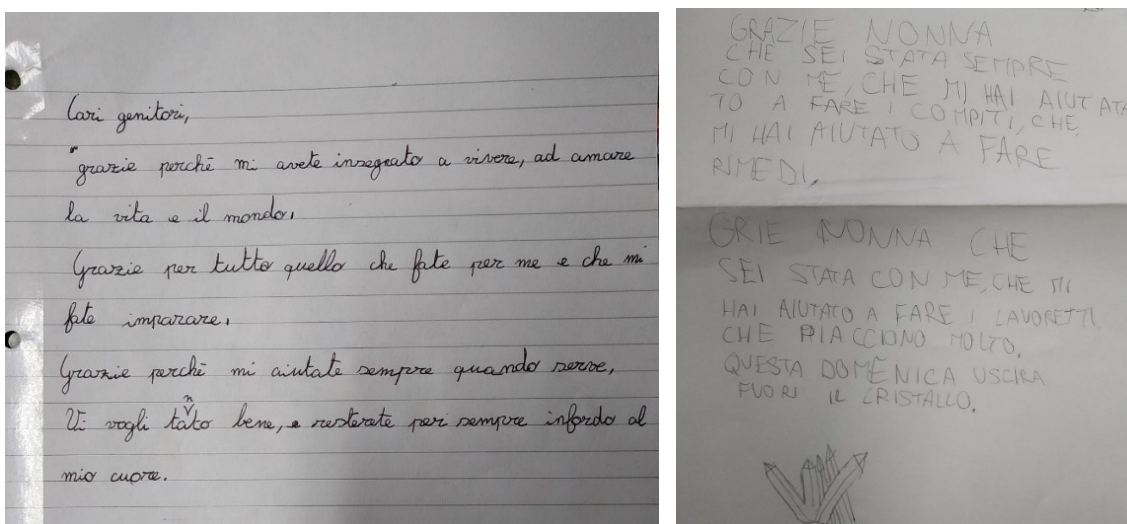 Cari genitori,
grazie perchè mi avete insegnato a vivere, ad amare
la vita e il mondo,
Grazie per tutto quello che fate per me e che mi
fate imparare,
Grazie perchè mi aiutate sempre quando serve,
Vi vogli tanto bene, e resterete per sempre infordo al
mio cuore.
GRAZIE NONNA
CHE SEI STATA SEMPRE
CON ME, CHE MI HAI AIUTATA
TO A FARE I COMPITI, CHE
MI HAI AIUTATO A FARE
RIMEDI.
GRIE NONNA CHE
SEI STATA CON ME, CHE MI
HAI AIUTATO A FARE I LAVORETTI
CHE PIACCIONO MOLTO.
QUESTA DOMENICA USCIRA
FUORI IL CRISTALLO.